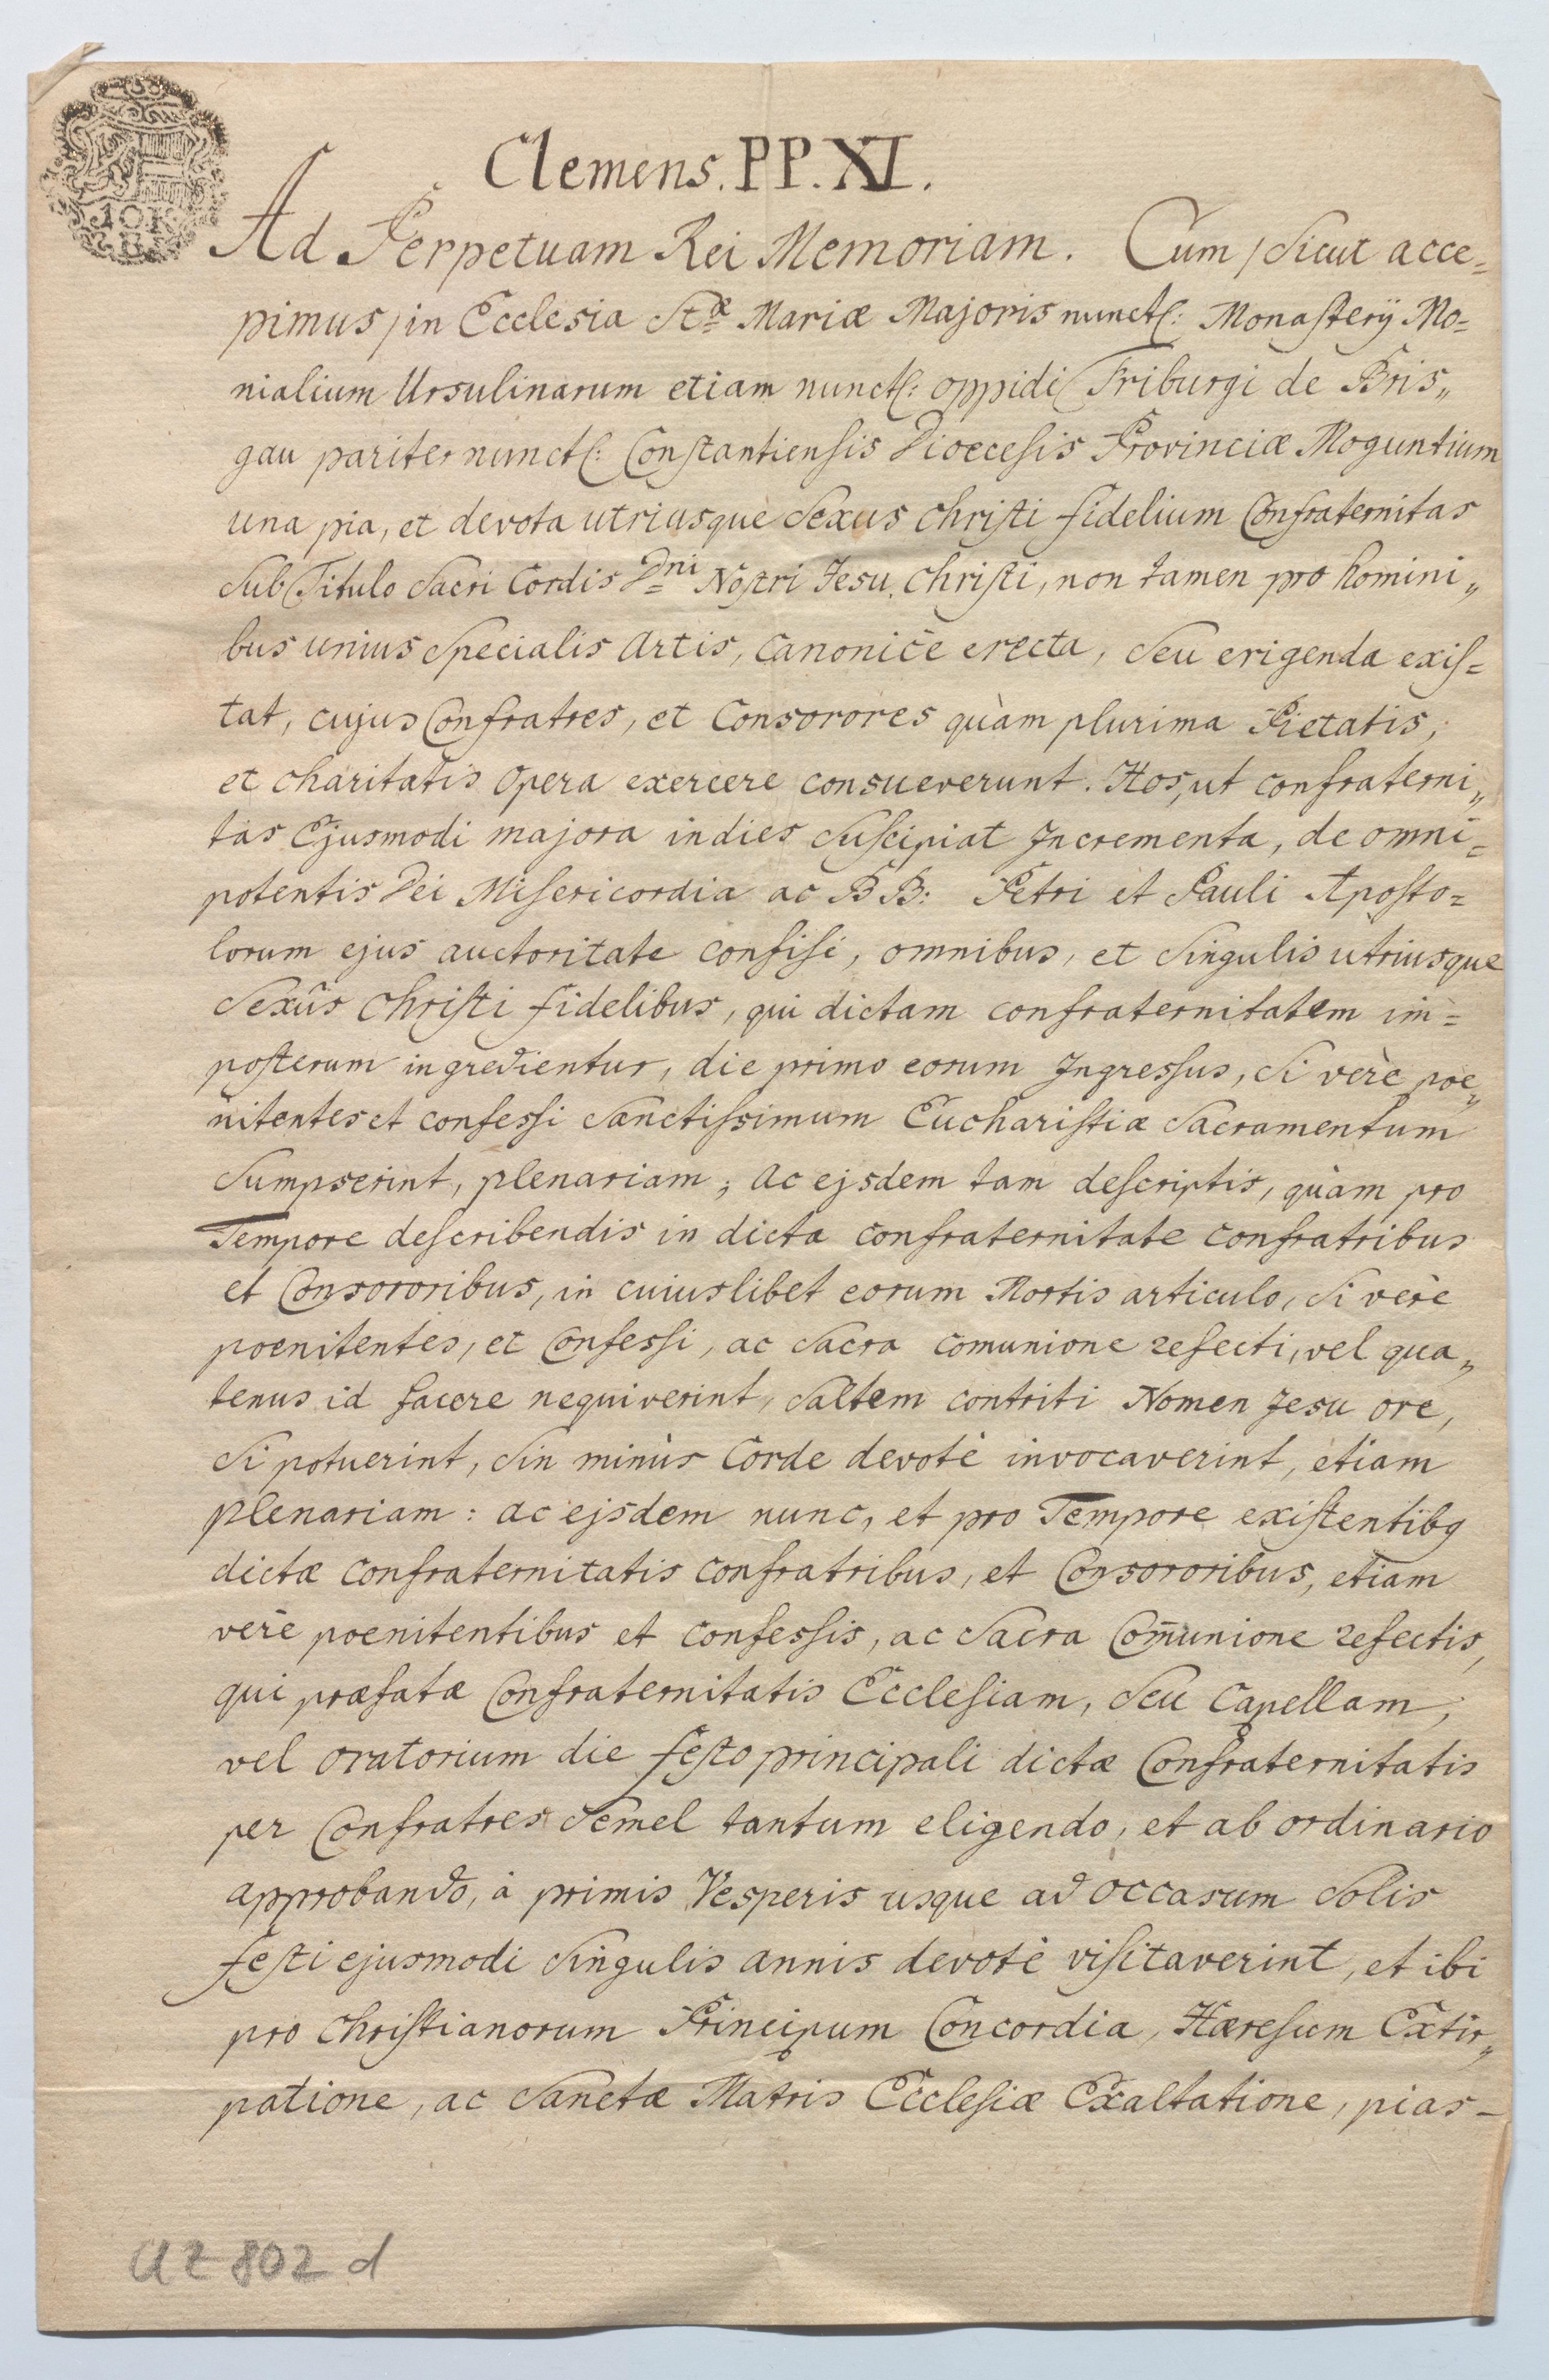 10 K
Clemens. PP. XI.
Ad Perpetuam Rei Memoriam. Cum / Sicut acce=
pimus / in Ecclesia Stæ Mariæ Majoris nunct: Monasterÿ Mo=
nialium Ursulinarum etiam nunct: oppidi Friburgi de Bris„
gau pariter nunct: Constantiensis Dioecesis Provinciæ Moguntium
una pia, et devota utriusque Sexus Christi fidelium Confraternitas
Sub Titulo Sacri Cordis Dni Nostri Jesu Christi, non tamen pro homini„
bus unius Specialis Artis, canonicè erecta, Seu erigenda exis=
tat, cujus Confratres, et Consorores quàm plurima Pietatis,
et charitatis opera exercere consueverunt. Nos, ut confraterni„
tas Ejusmodi majora indies Suscipiat Incrementa, de omni=
potentis Dei Misericordia ac BB: Petri et Pauli Aposto=
lorum ejus auctoritate confisi, omnibus, et Singulis utriusque
Sexûs Christi fidelibus, qui dictam confraternitatem im=
posterum ingredientur, die primo eorum Ingressus, Si verè poe„
nitentes et confessi Sanctissimum Eucharistiæ Sacramentum
Sumpserint, plenariam; ac ejsdem tam descriptis, quàm pro
Tempore describendis in dicta confraternitate confratribus
et Consororibus, in cuiuslibet eorum Mortis articulo, Si verè
poenitentes, et Confessi, ac Sacra comunione refecti, vel qua„
tenus id facere nequiverint, Saltem contriti Nomen Jesu ore,
Si potuerint, Sin minùs Corde devotè invocaverint, etiam
plenariam: ac ejsdem nunc, et pro Tempore existentibg
dictæ confraternitatis confratribus, et Consororibus, etiam
verè poenitentibus et confessis, ac Sacra Com̄unione refectis,
qui præfatæ Confraternitatis Ecclesiam, Seu Capellam,
vel oratorium die festo principali dictæ Confraternitatis
per Confratres Semel tantum eligendo, et ab ordinario
approbando, à primis Vesperis usque ad occasum Solis
festi ejusmodi Singulis annis devotè visitaverint, et ibi
pro Christianorum Principum Concordia, Hæresum Extir„
patione, ac Sanctæ Matris Ecclesiæ Exaltatione, pias–
UZ 802 d